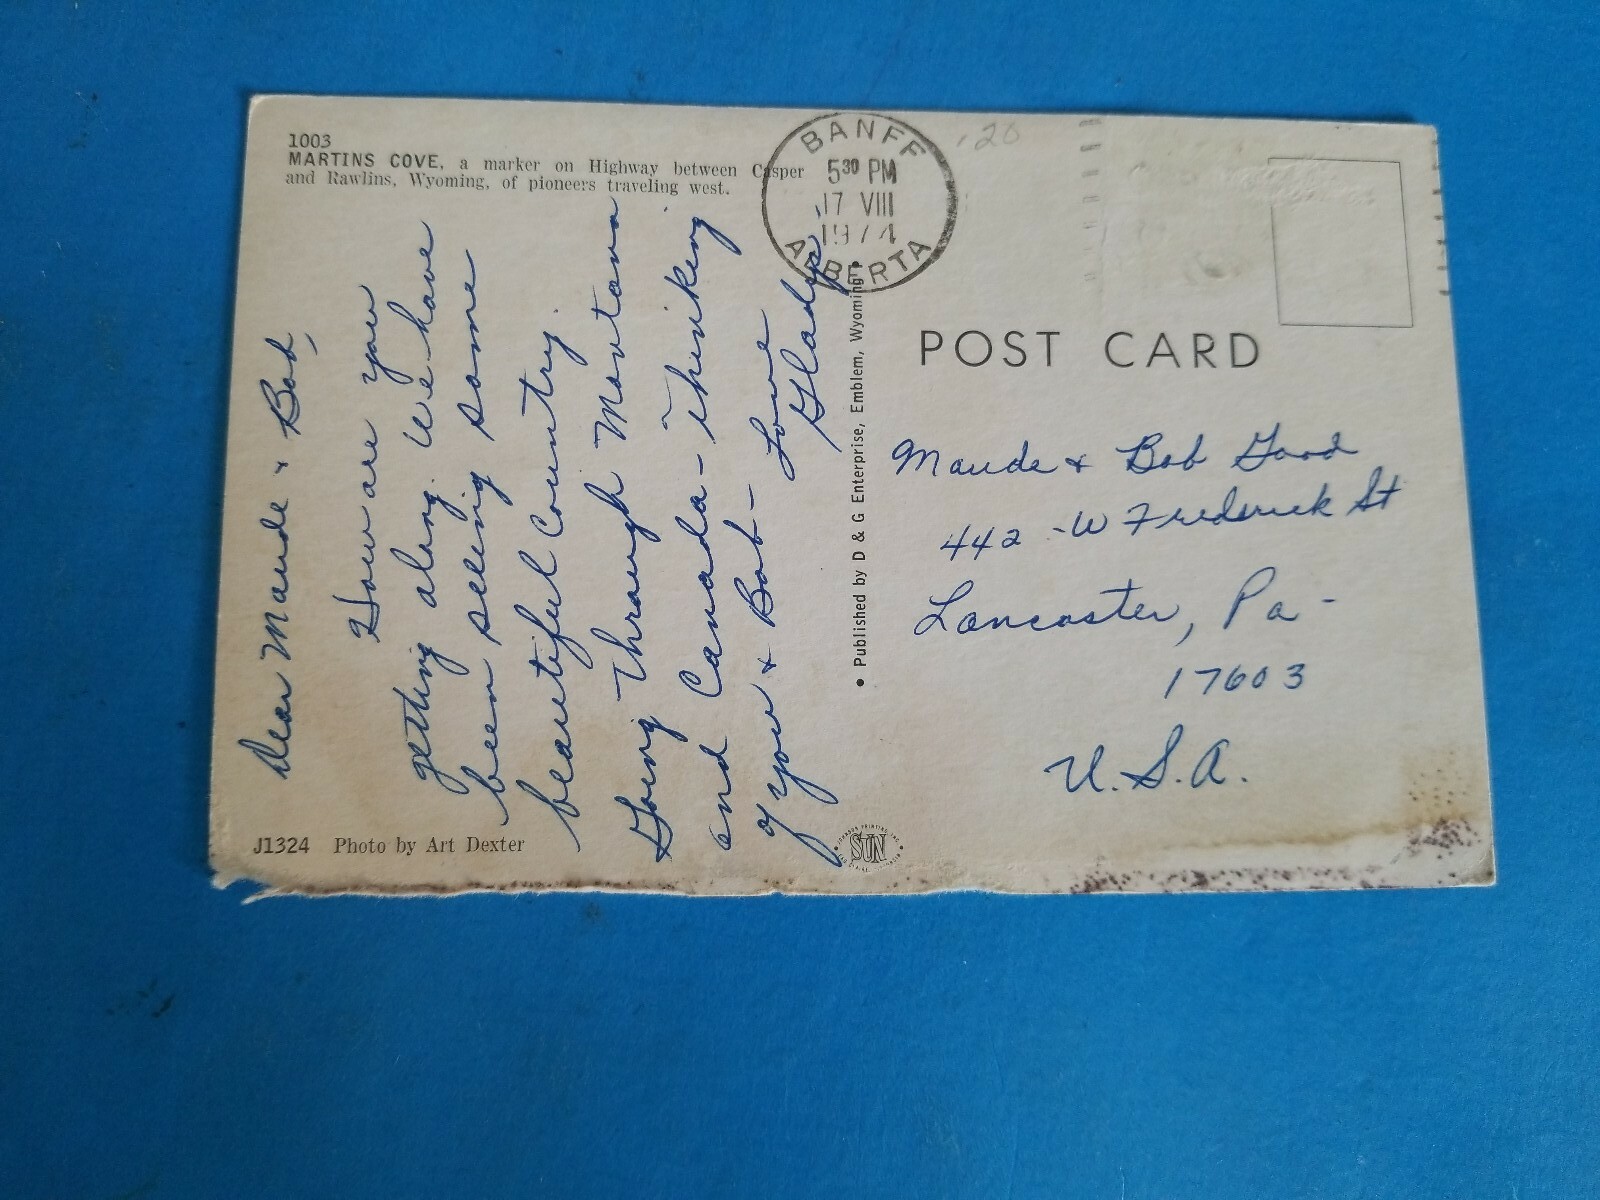 1003
MARTINS COVE, a marker on Highway between Casper
and Rawlins, Wyoming, of pioneers traveling west.
BANFF
5 30 PM
17 VIII
1974
ALBERTA
.20
Dear Maude & Bob,
How are you
getting along. We have
been seeing some
beautiful Country.
Going through Montana
and Canada - thinking
of you & Bob -
Love
Gladys
J1324 Photo by Art Dexter
• Published by D & G Enterprise, Emblem, Wyoming •
SUN
POST CARD
Maude & Bob Good
442 - W Frederick St
Lancaster, Pa -
17603
U.S.A.